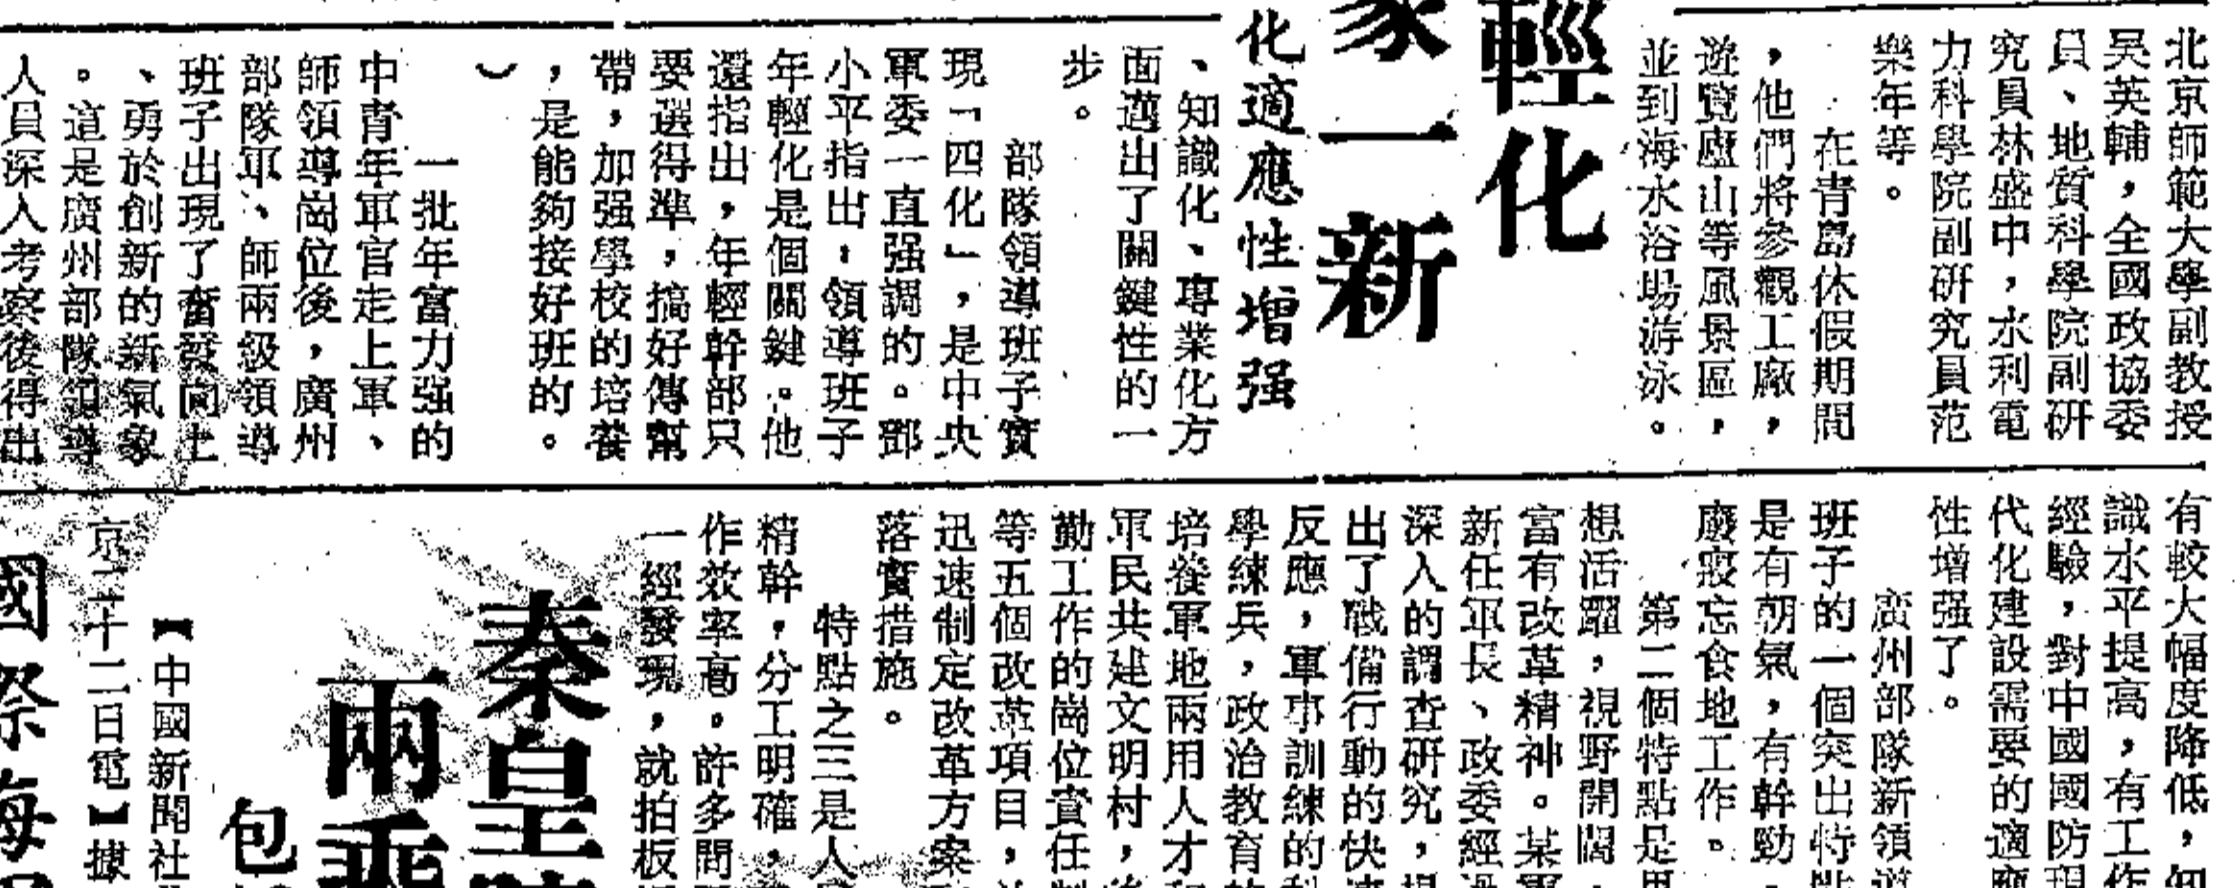 北京師範大學副教授
吳英輔，全國政協委
員、地質科學院副研
究員林盛中，水利電
力科學院副研究員范
樂年等。
在青島休假期間
，他們將參觀工廠，
遊覽廬山等風景區，
並到海水浴場游泳。
輕化
象一新
化適應性增强
、知識化、專業化方
面邁出了關鍵性的一
步。
部隊領導班子實
現「四化」，是中央
軍委一直强調的。鄧
小平指出，領導班子
年輕化是個關鍵。他
還指出，年輕幹部只
要選得準，搞好傳幫
帶，加强學校的培養
，是能夠接好班的。
）
一批年富力强的
中青年軍官走上軍、
師領導崗位後，廣州
部隊軍、師兩級領導
班子出現了奮發向上
、勇於創新的新氣象
。這是廣州部隊領導
人員深入考察後得出
有較大幅度降低，知
識水平提高，有工作
經驗，對中國國防現
代化建設需要的適應
性增强了。
廣州部隊新領導
班子的一個突出特點
是有朝氣，有幹勁，
廢寢忘食地工作。
第二個特點是思
想活躍，視野開闊，
富有改革精神。某軍
新任軍長、政委經過
深入的調查研究，提
出了戰備行動的快速
反應，軍事訓練的科
學練兵，政治教育的
培養軍地兩用人才和
軍民共建文明村，後
勤工作的崗位責任制
等五個改革項目，並
迅速制定改革方案
落實措施。
特點之三是人
精幹，分工明確，
作效率高。許多問
一經發現，就拍板
秦皇陵
兩乘
包
【中國新聞社
京二十二日電】據
國際海